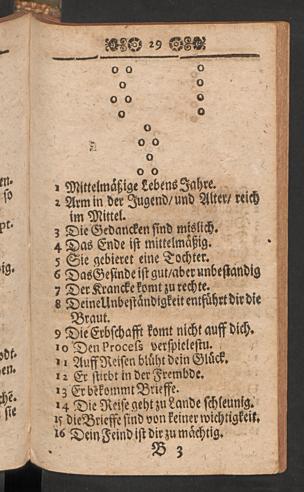 29
1 Mittelmäßige Lebens Jahre.
2 Arm in der Jugend/ und Alter/ reich
im Mittel.
3 Die Gedancken sind mislich.
4 Das Ende ist mittelmäßig.
5 Sie gebieret eine Tochter.
6 Das Gesinde ist gut/ aber unbeständig
7 Der Krancke komt zu rechte.
8 Deine Unbeständigkeit entführt dir die
Braut.
9 Die Erbschafft komt nicht auff dich.
10 Den Process verspielestu.
11 Auff Reisen blüht dein Glück.
12 Er stirbt in der Frembde.
13 Er bekommt Brieffe.
14 Die Reise geht zu Lande schleunig.
15 die Brieffe sind von keiner wichtigkeit.
16 Dein Feind ist dir zu mächtig.
B 3